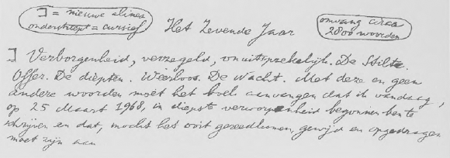 ] = nieuwe alinea
onderstreept = cursief
Het Zevende Jaar
omvang circa
2800 woorden
] Verborgenheid, verzegeld, onuitsprekelijk. De Stilte.
Offer. De diepten. Weerloos. De Wacht. Met deze en geen
andere woorden moet het boek aanvangen dat ik vandaag,
op 25 Maart 1968, in diepste verworpenheid begonnen ben te
schrijven en dat, mocht het ooit gereedkomen, gewijd en opgedragen
moet zijn aan